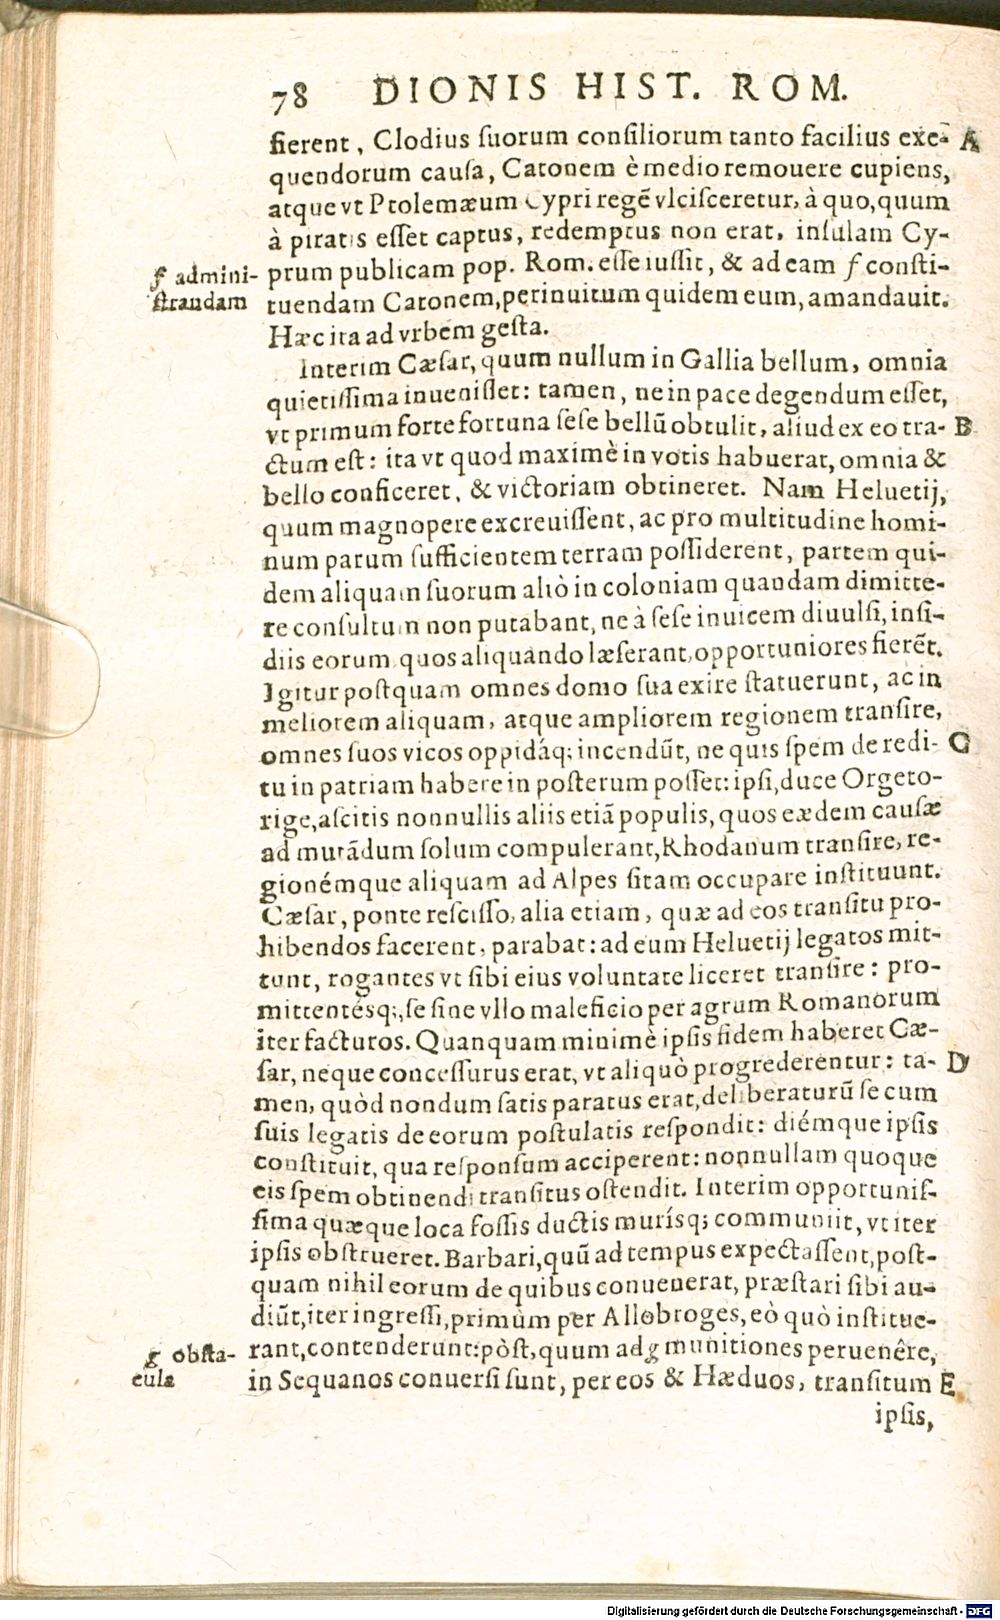 78 DIONIS HIST. ROM.
fierent, Clodius suorum consiliorum tanto facilius exe- A
quendorum causa, Catonem è medio remouere cupiens,
atque vt Ptolemæum Cypri regē vlcisceretur, à quo, quum
à piratis esset captus, redemptus non erat, insulam Cy-
f admini- prum publicam pop. Rom. esse iussit, & ad eam f consti-
strandam tuendam Catonem, perinuitum quidem eum, amandauit.
Hæc ita ad vrbem gesta.
Interim Cæsar, quum nullum in Gallia bellum, omnia
quietissima inuenisset: tamen, ne in pace degendum esset,
vt primum forte fortuna sese bellū obtulit, aliud ex eo tra- B
ctum est: ita vt quod maximè in votis habuerat, omnia &
bello conficeret, & victoriam obtineret. Nam Heluetij,
quum magnopere excreuissent, ac pro multitudine homi-
num parum sufficientem terram possiderent, partem qui-
dem aliquam suorum aliò in coloniam quandam dimitte-
re consultum non putabant, ne à sese inuicem diuulsi, insi-
diis eorum quos aliquando læserant, opportuniores fierēt.
Igitur postquam omnes domo sua exire statuerunt, ac in
meliorem aliquam, atque ampliorem regionem transire,
omnes suos vicos oppidáq; incendūt, ne quis spem de redi- C
tu in patriam habere in posterum posset: ipsi, duce Orgeto-
rige, ascitis nonnullis aliis etiā populis, quos eædem causæ
ad mutādum solum compulerant, Rhodanum transire, re-
gionémque aliquam ad Alpes sitam occupare instituunt.
Cæsar, ponte rescisso, alia etiam, quæ ad eos transitu pro-
hibendos facerent, parabat: ad eum Heluetij legatos mit-
tunt, rogantes vt sibi eius voluntate liceret transire: pro-
mittentésq;, se sine vllo maleficio per agrum Romanorum
iter facturos. Quanquam minimè ipsis fidem haberet Cæ-
sar, neque concessurus erat, vt aliquò progrederentur: ta- D
men, quòd nondum satis paratus erat, deliberaturū se cum
suis legatis de eorum postulatis respondit: diémque ipsis
constituit, qua responsum acciperent: nonnullam quoque
eis spem obtinendi transitus ostendit. Interim opportunis-
sima quæque loca fossis ductis murísq; communiit, vt iter
ipsis obstrueret. Barbari, quū ad tempus expectassent, post-
quam nihil eorum de quibus conuenerat, præstari sibi au-
diūt, iter ingressi, primùm per Allobroges, eò quò institue-
g obsta- rant, contenderunt: pòst, quum ad g munitiones peruenêre,
cula in Sequanos conuersi sunt, per eos & Hæduos, transitum E
ipsis,
Digitalisierung gefördert durch die Deutsche Forschungsgemeinschaft - DFG